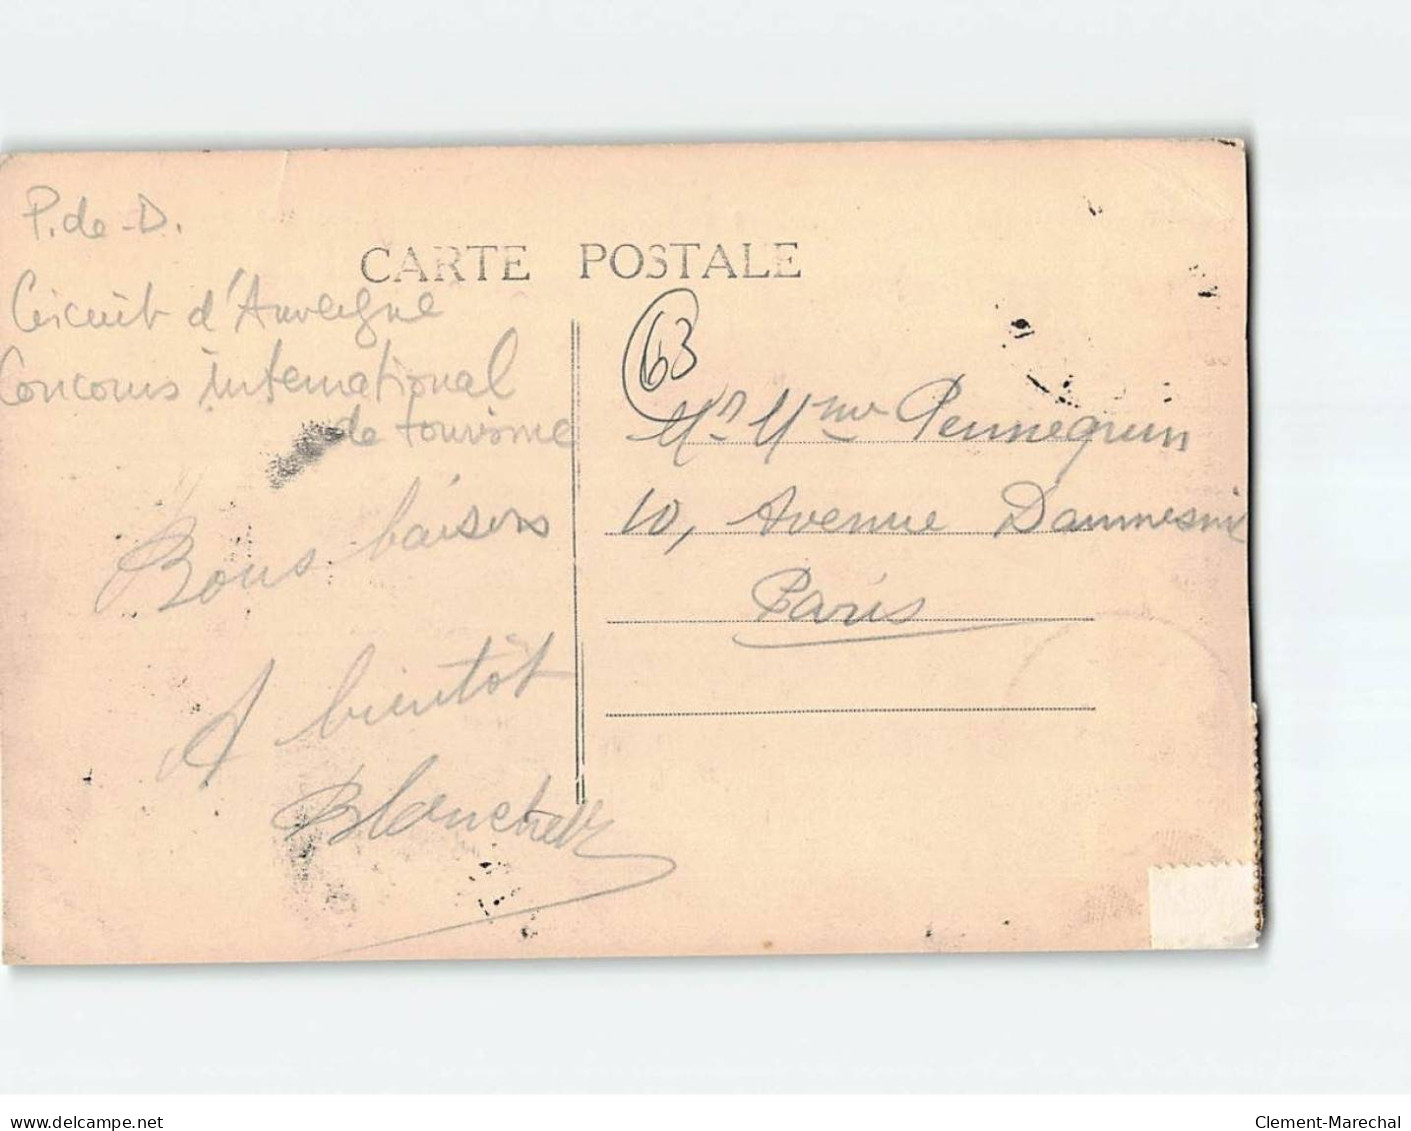 P. de D.
CARTE POSTALE
Circuit d'Auvergne
Concours international
de tourisme
Bons baisers
A bientôt
63
Mr Mme Pennequin
10, Avenue Daumesnil
Paris
www.delcampe.net
Clement-Marechal